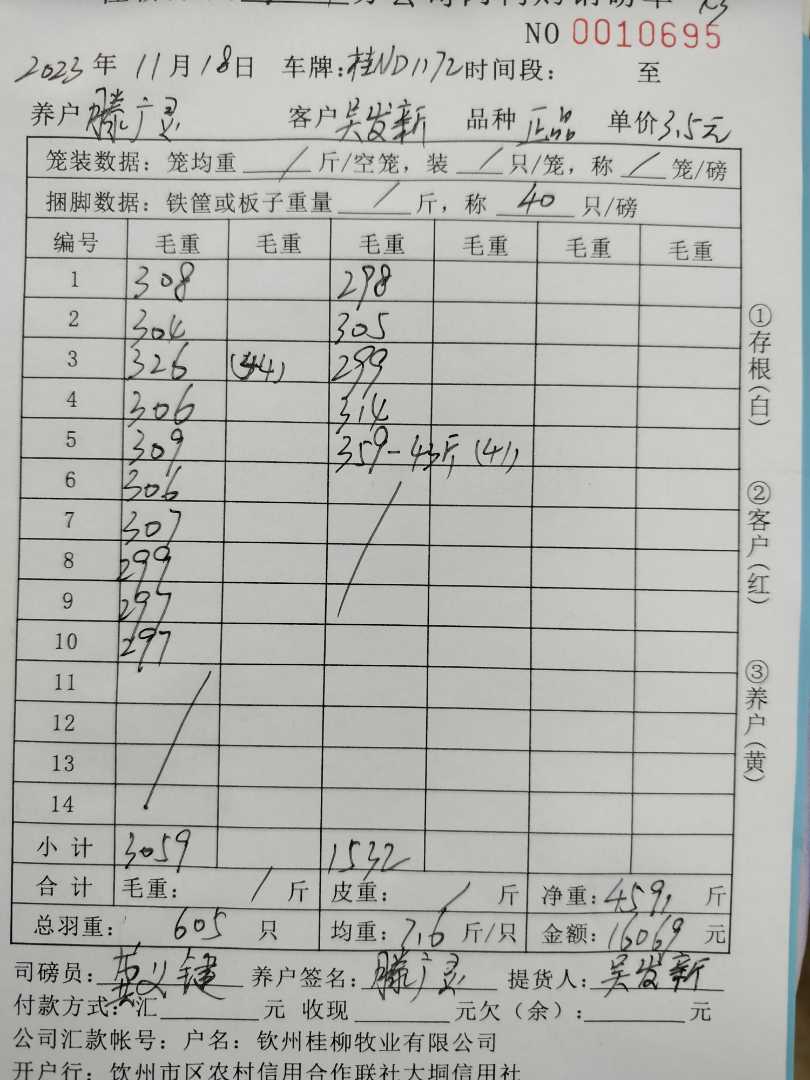 NO 0010695
2023年 11月 18日 车牌:桂ND1172 时间段: 至
养户 滕广灵 客户 吴发新 品种 正品 单价 3.5元
笼装数据: 笼均重 / 斤/空笼, 装 / 只/笼, 称 / 笼/磅
捆脚数据: 铁筐或板子重量 / 斤, 称 40 只/磅
编号 毛重 毛重 毛重 毛重 毛重 毛重
1 308 298
2 304 305
3 326 (44) 299
4 306 314
5 309 359-43斤 (41)
6 306
7 307
8 299
9 297
10 297
11
12
13
14
小计 3059 1532
合计 毛重: / 斤 皮重: / 斤 净重: 4591 斤
总羽重: 605 只 均重: 7.6 斤/只 金额: 16069 元
司磅员: 养户签名: 滕广灵 提货人: 吴发新
付款方式: 汇 元 收现 元欠(余): 元
公司汇款帐号: 户名: 钦州桂柳牧业有限公司
开户行: 钦州市区农村信用合作联社大垌信用社
①存根(白)
②客户(红)
③养户(黄)